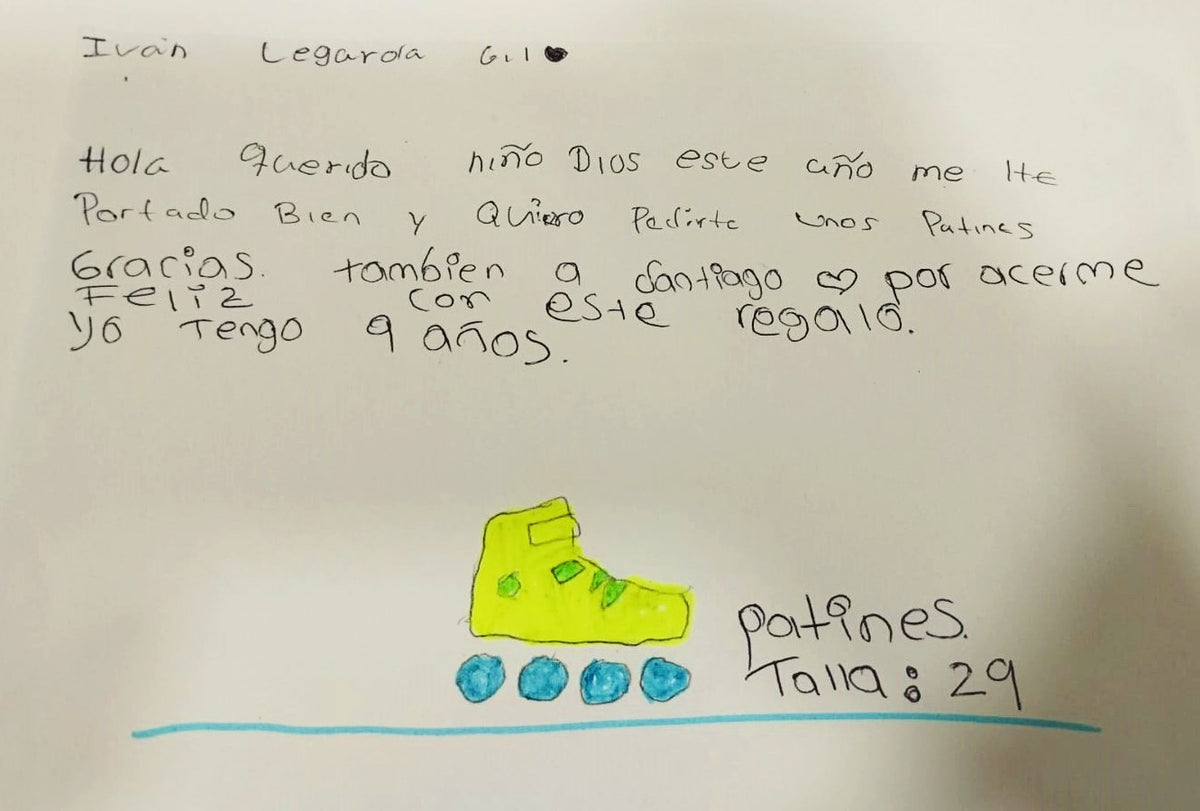 Iván Legarda Gil
Hola Querido niño Dios este año me He
Portado Bien y Quiero Pedirte unos Patines
Gracias. tambien a Santiago ♡ por acerme
Feliz con este regalo.
yo Tengo 9 años.
patines.
Talla: 29